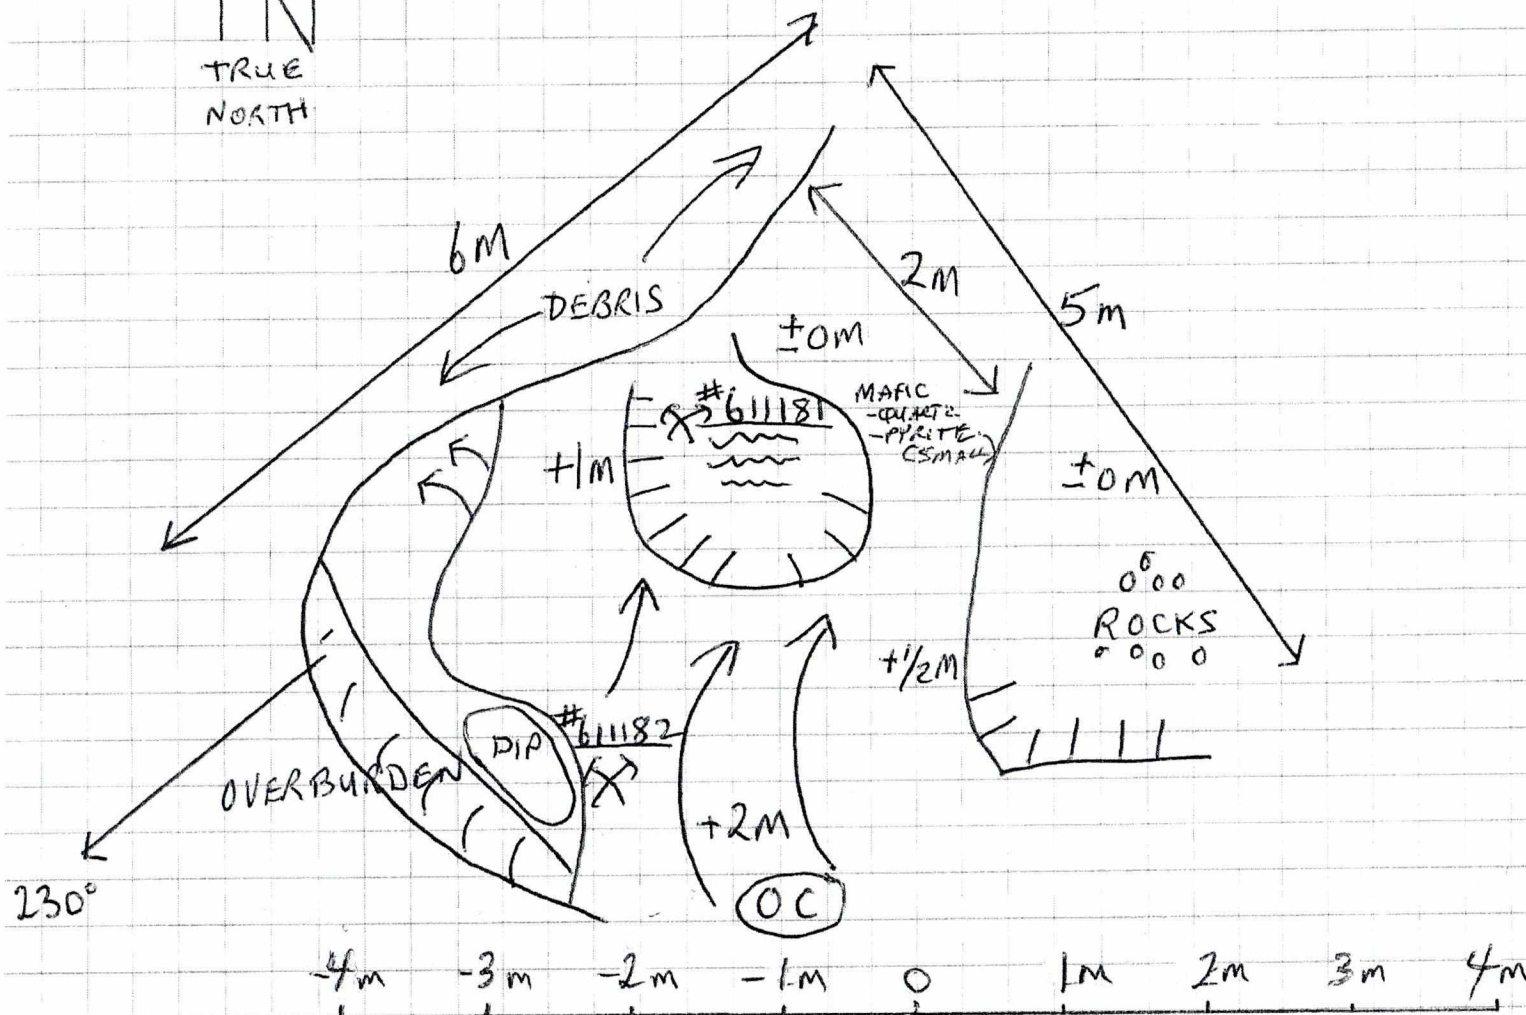 N
TRUE
NORTH
6M
DEBRIS
2M
5m
±0M
#611181
MAFIC
-QUARTZ
-PYRITE
(SMALL)
+1M
±0M
ROCKS
+1/2M
#611182
DIP
OVERBURDEN
+2M
OC
230°
-4m -3m -2m -1m 0 1m 2m 3m 4m